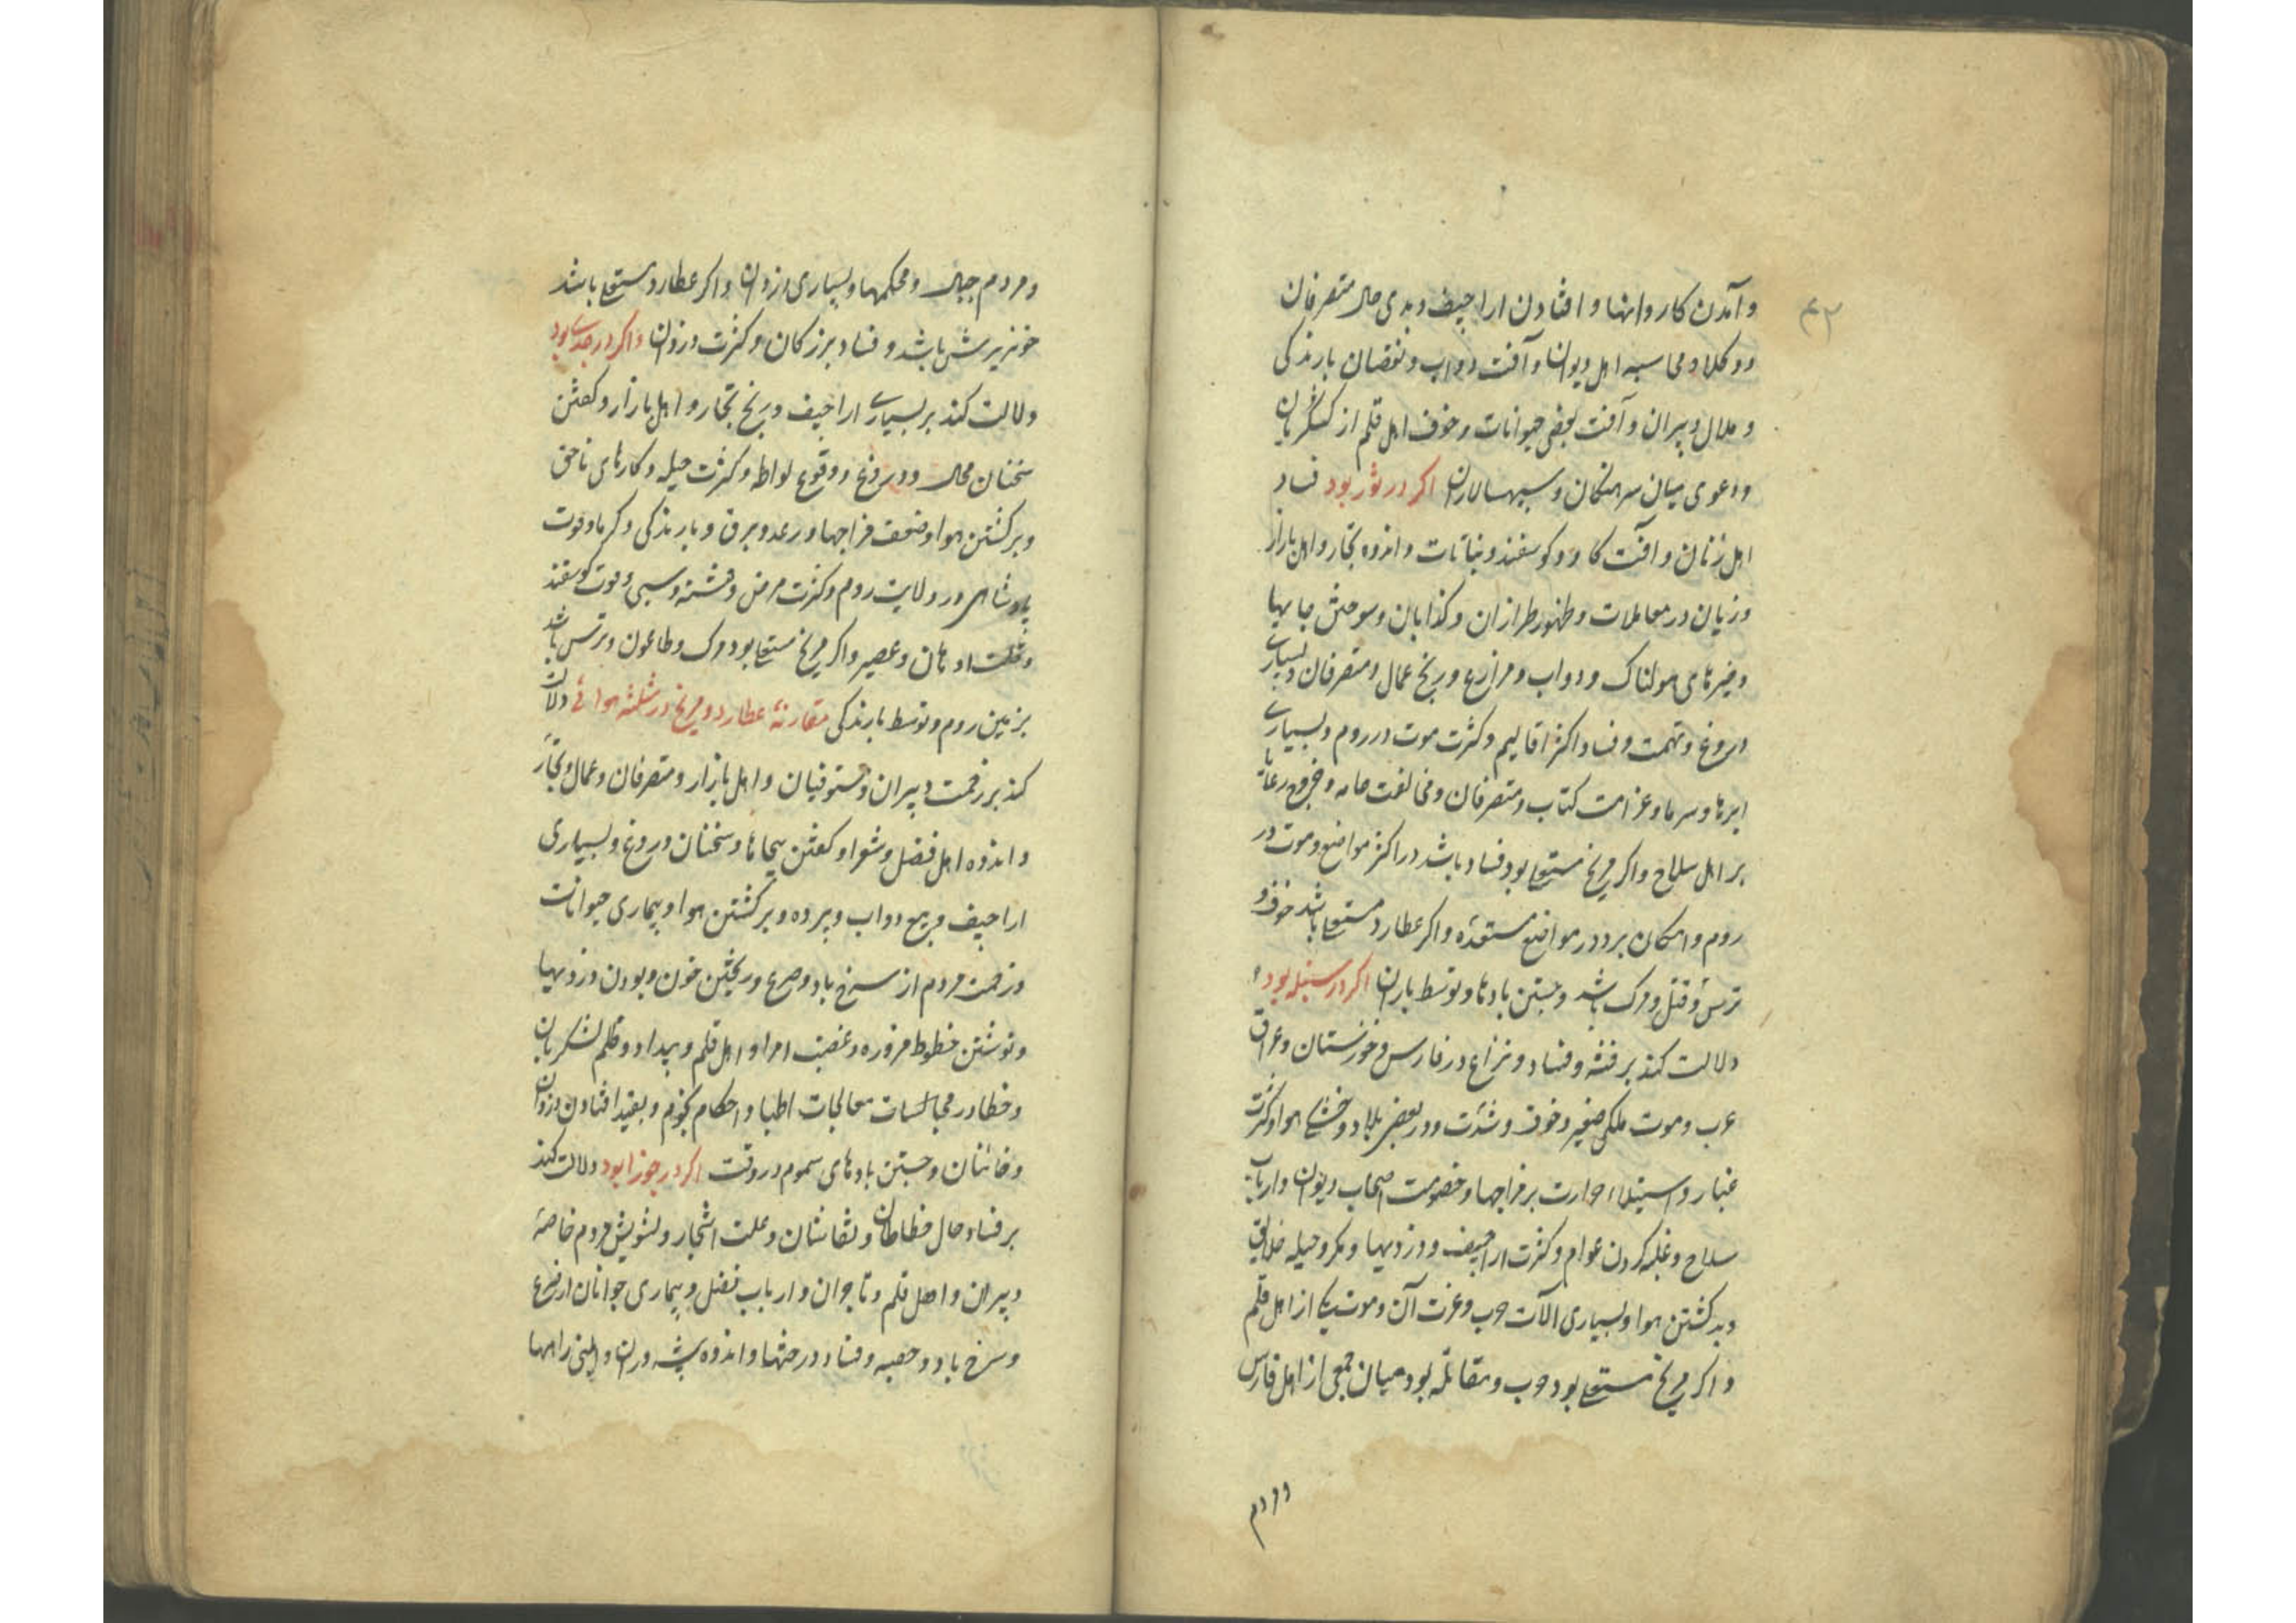 ۴۳
و آمدن کاروانها و افتادن اراجیف و بدی حال متصرفان
و وکلا و محاسبه اهل دیوان و آفت دواب و نقصان بارندگی
و ملال دبیران و آفت بعضی حیوانات و خوف اهل قلم از لشکریان
و دعوی میان سرهنگان و سپهسالاران اکر در ثور بود فساد
اهل زنان و آفت کاو و کوسفند و نباتات و اندوه تجار و اهل بازار
و زیان در معاملات و ظهور طراران و کذابان و سوختن جایها
و خبرهای هولناک و دواب و مزارع و رنج عمال و متصرفان و بسیاری
دروغ و تهمت و فساد اکثر اقالیم و کثرت موت در روم و بسیاری
ابرها و سرما و غرامت کتاب و متصرفان و مخالفت عامه و خروج رعایا
بر اهل سلاح و اکر مریخ مستعلی بود فساد باشد در اکثر مواضع و موت در
روم و امکان برد در مواضع مستعده و اکر عطارد مستعلی باشد خوف و
ترس و قتل و مرک باشد و جستن بادها و توسط باران اکر در سنبله بود
دلالت کند بر فتنه و فساد و نزاع در فارس و خوزستان و عراق
عرب و موت ملکی صغیر و خوف و شدت و در بعضی بلاد و خشکی هوا و کثرت
غبار و استیلاء حرارت بر مزاجها و خصومت اصحاب دیوان و ارباب
سلاح و غلبه کردن عوام و کثرت اراجیف و دزدیها و مکر و حیله خلایق
و بد کشتن هوا و بسیاری آلات حرب و عزت آن و موت یکی از اهل قلم
و اکر مریخ مستعلی بود حرب و مقاتله بود میان جمعی از اهل فارس
و مردم
و مردم جبال و محکمها و بسیاری دزدان و اکر عطارد مستعلی باشد
خونریزش باشد و فساد بزرکان و کثرت دزدان و اکر در جدی بود
دلالت کند بر بسیاری اراجیف و رنج تجار و اهل بازار و کفتن
سخنان محال و دروغ و وقوع لواطه و کثرت حیله و کارهای ناحق
و برکشتن هوا و ضعف مزاجها و رعد و برق و بارندکی و کرما و فوت
پادشاهی در ولایت روم و کثرت مرض و فتنه و سبی و موت کوسفند
و قلت ادهان و عصیر و اکر مریخ مستعلی بود مرک و طاعون و ترس باشد
بزمین روم و توسط بارندکی مقارنهٔ عطارد و مریخ در مثلثه هوائی دلالت
کند بر زحمت دبیران و مستوفیان و اهل بازار و متصرفان و عمال و تجار
و اندوه اهل فضل و شعرا و کفتن هجاها و سخنان دروغ و بسیاری
اراجیف و بیع دواب و برده و برکشتن هوا و بیماری حیوانات
و زحمت مردم از سرخ باد و صرع و ریختن خون و بودن دزدیها
و نوشتن خطوط مزوره و غضب امرا و اهل قلم و بیداد و ظلم لشکریان
و خطا در معالجات اطبا و احکام نجوم و بقید افتادن دزدان
و خائنان و جستن بادهای سموم در وقت اکر در جوزا بود دلالت کند
بر فساد حال خطاطان و نقاشان و علت اشجار و تشویش مردم خاصه
دبیران و اهل قلم و تاجران و ارباب فضل و بیماری جوانان از صرع
و سرخ باد و حصبه و فساد درختها و اندوه پیشه وران و ایمنی راهها